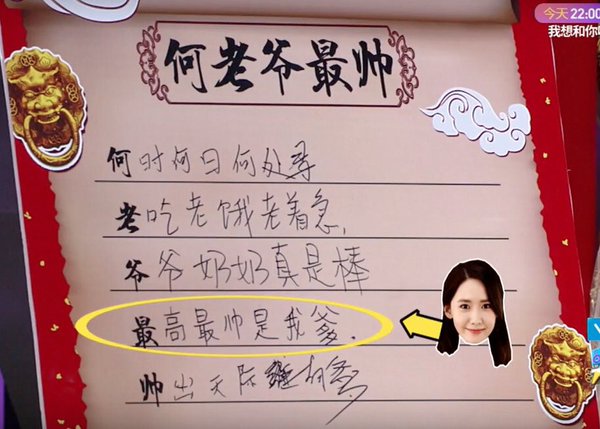 今天 22:00
我想和你
何老爷最帅
何时何日何处寻
老吃老饿老着急,
爷爷奶奶真是棒
最高最帅是我爹.
帅出天际